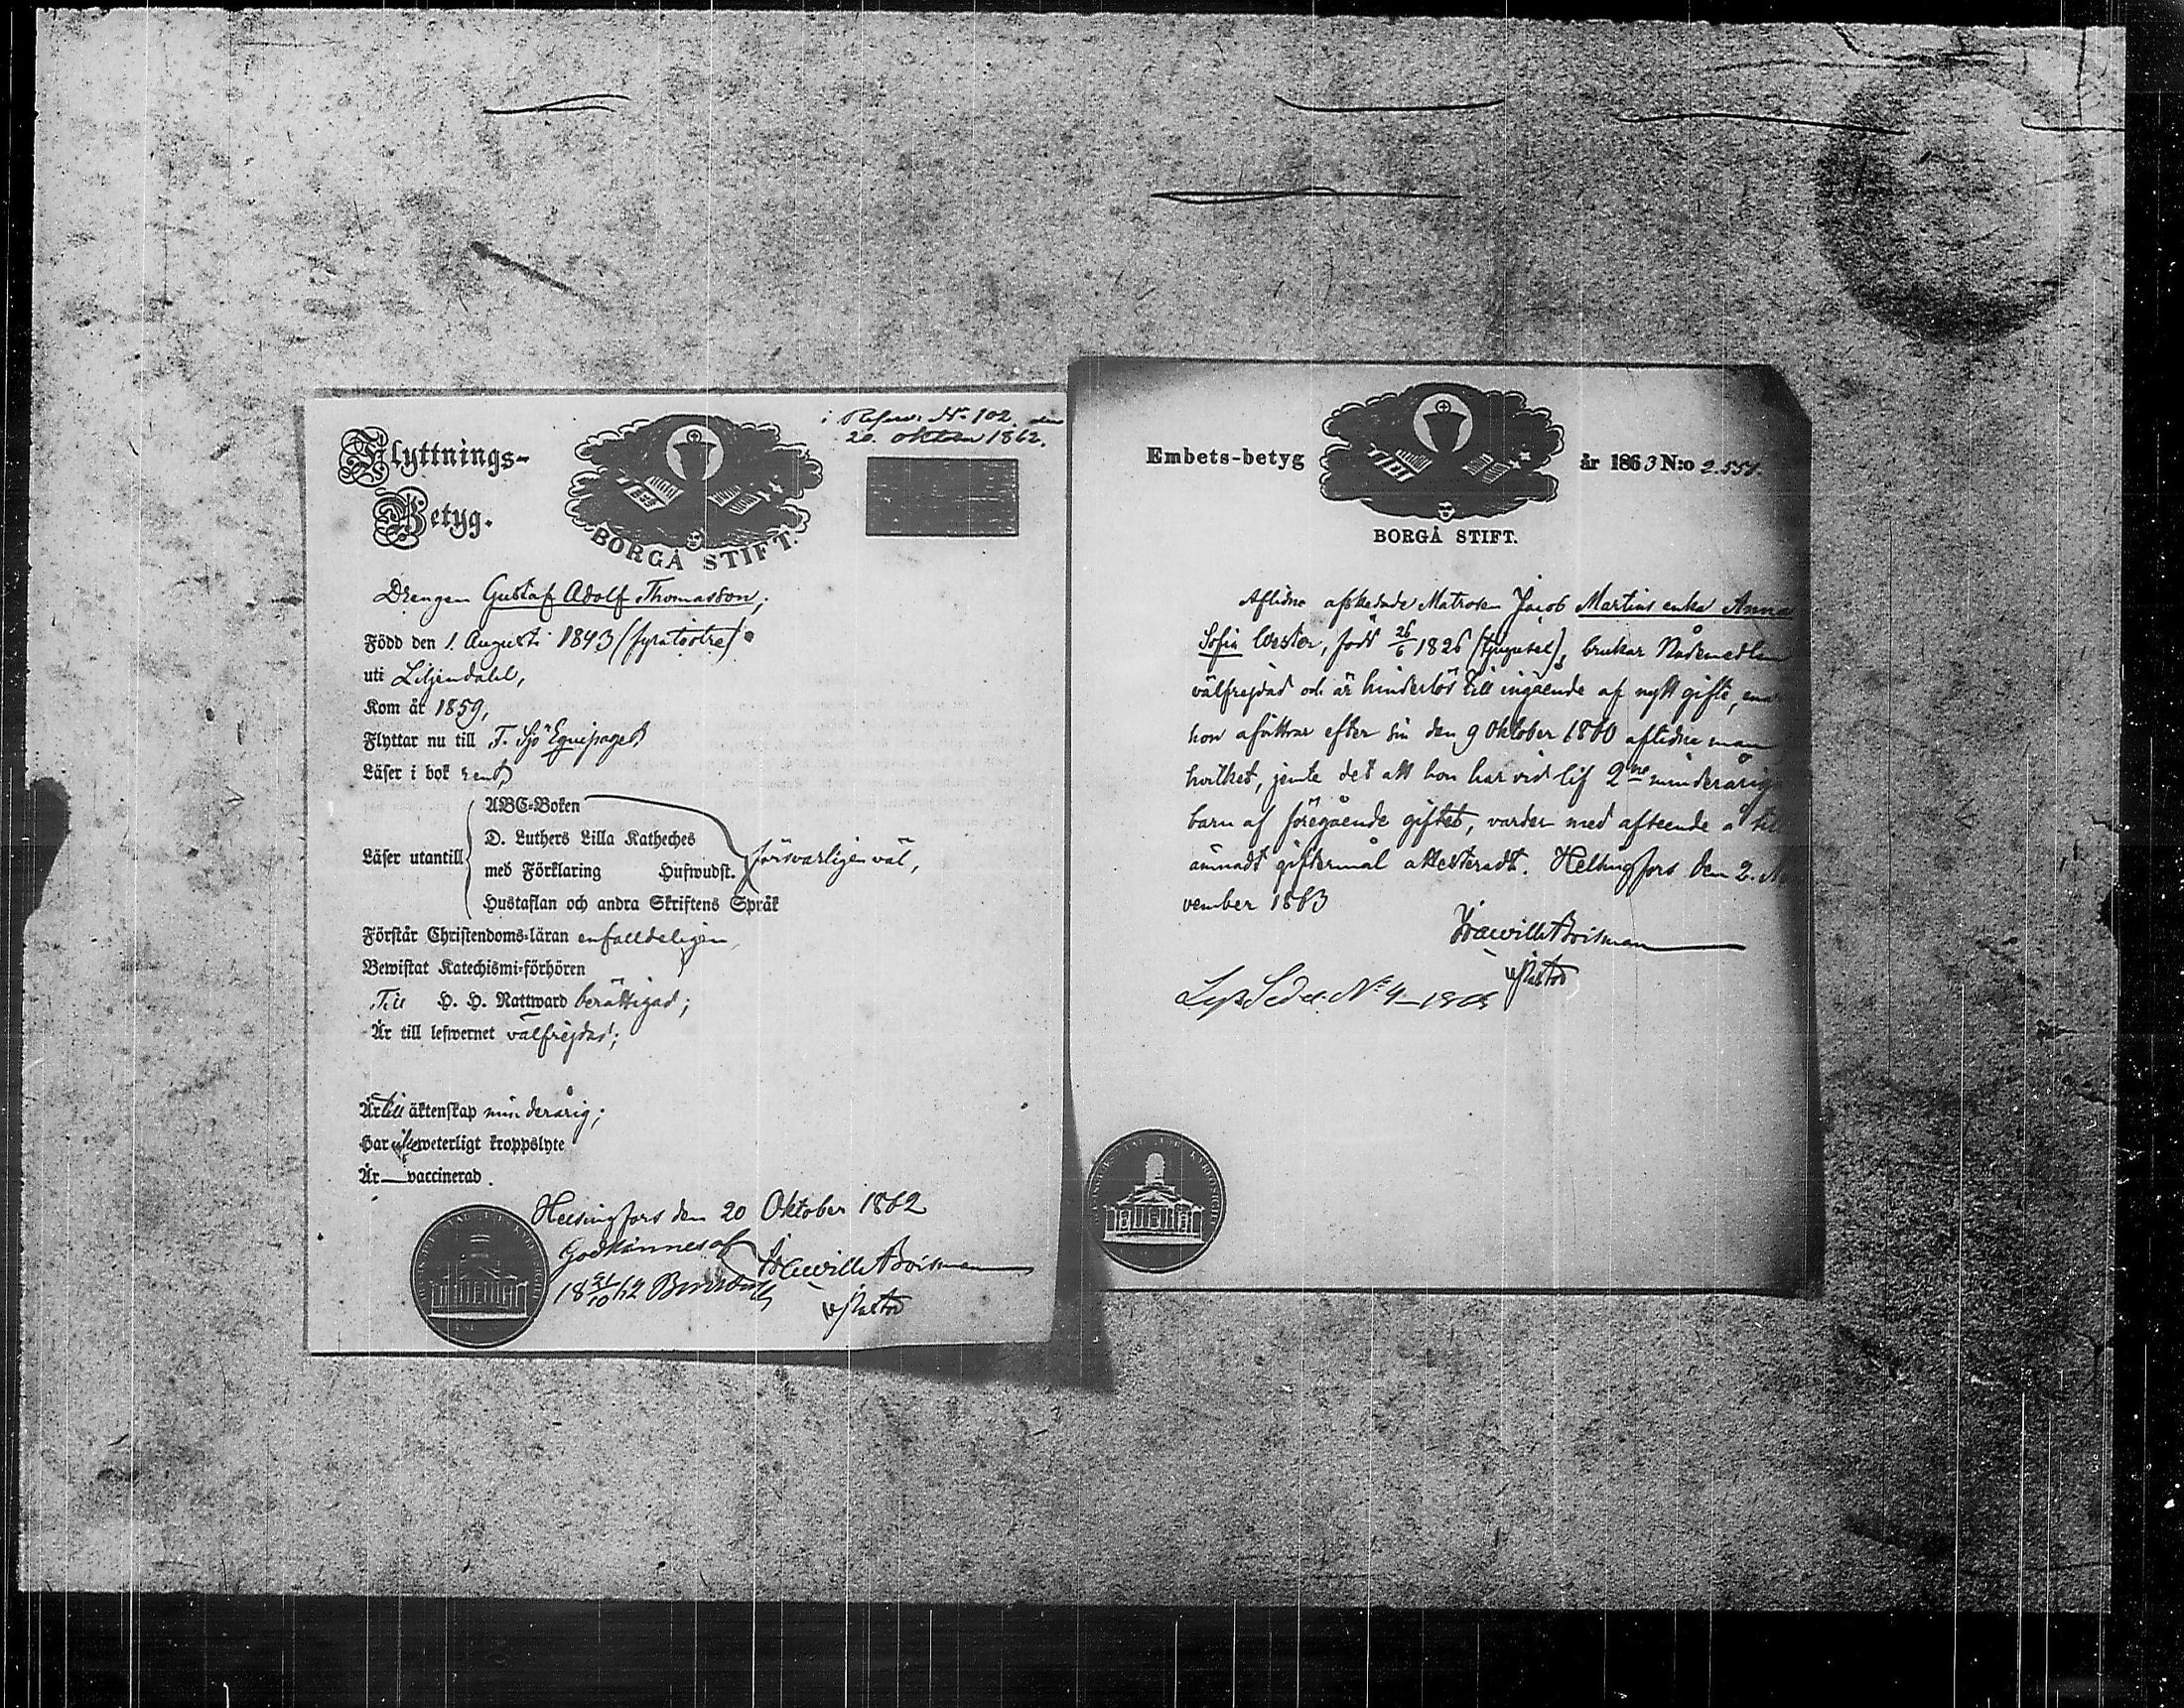 Flyttnings-
Betyg.
BORGÅ STIFT.
i Reserv. N:o 102. den
20. Oktober 1862.
Drengen Gustaf Adolf Thomasson;
Född den 1. Augusti 1843 (fyratiotre)
uti Liljendahl,
Kom år 1859,
Flyttar nu till F. Sjö Equipaget
Läser i bok rent,
ABC-Boken
D. Luthers Lilla Katheches
Läser utantill med Förklaring Hufwudst. försvarligen väl,
Hustaflan och andra Skriftens Språk
Förstår Christendoms-läran enfalldeligen,
Bewistat Katechismi-förhören
Till H. H. Nattward berättigad;
Är till lefwernet välfrejdad;
Är till äktenskap minderårig;
Har weterligt kroppslyte
Är vaccinerad.
Helsingfors den 20 Oktober 1862
Godkännes af
18 21/10 62
v Pastor
Embets-betyg
år 1863 N:o 2.551.
BORGÅ STIFT.
Aflidne afskedade Matrosen Jacob Martins enka Anna
Sofia Wester, född 26/6 1826 (tjugusex), brukar Nådemedlen
välfrejdad och är hinderlös till ingående af nytt gifte, enär
hon afvittrat efter sin den 9 Oktober 1860 aflidne man
hvilket, jemte det att hon har vid lif 2ne minderåriga
barn af föregående giftet, varder med afseende å till
ämnadt giftermål attesteradt. Helsingfors den 2. No
vember 1863
v Pastor
Lys Sedel N:o 4 1863